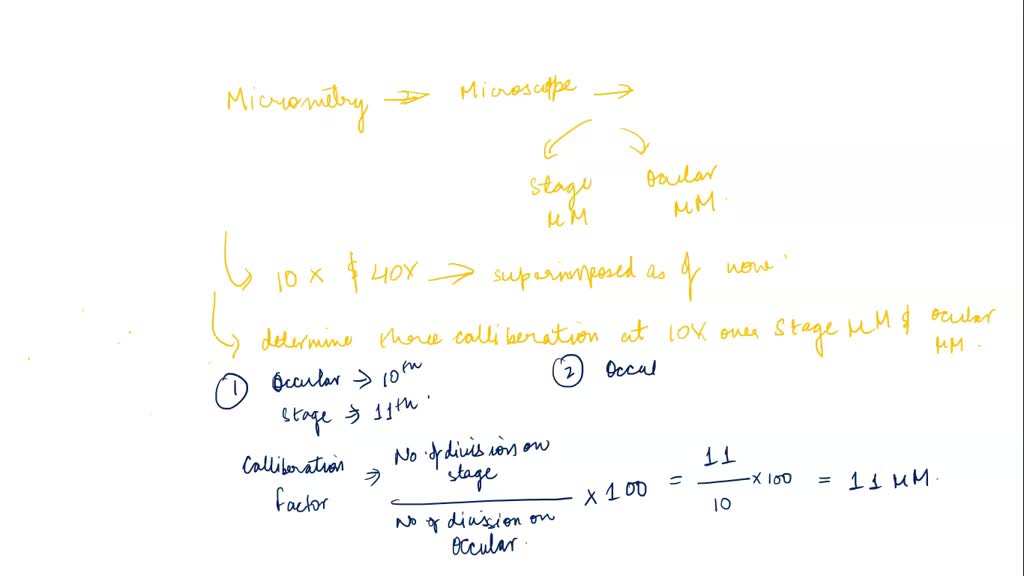 Micrometry → Microscope →
Stage Ocular
μM μM.
10 X & 40X → superimposed as of now.
determine three calliberation at 10X over Stage μM & ocular μM.
① Occular → 10th
Stage → 11th.
② Occul
Calliberation factor ⇒ No. of divisions on stage
No of division on Occular.
× 100 = 11 / 10 × 100 = 11 μM.